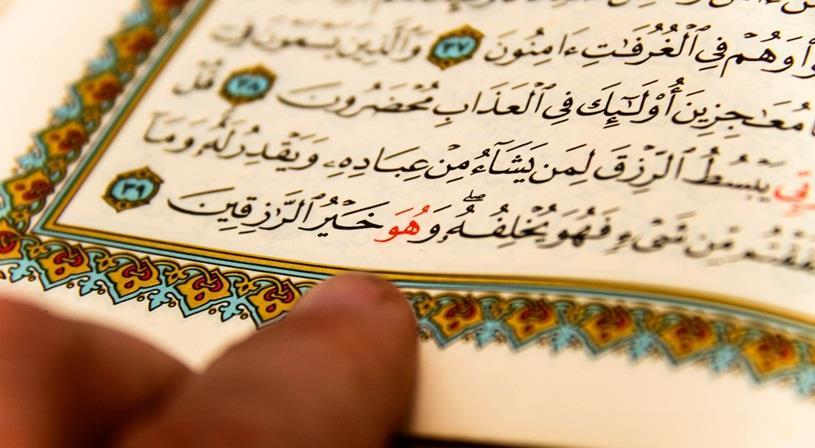 وَهُمْ فِي ٱلْغُرُفَٰتِ ءَامِنُونَ ٣٧ وَٱلَّذِينَ يَسْعَوْنَ فِيٓ
مُعَٰجِزِينَ أُو۟لَٰٓئِكَ فِي ٱلْعَذَابِ مُحْضَرُونَ ٣٨ قُلْ
يَبْسُطُ ٱلرِّزْقَ لِمَن يَشَآءُ مِنْ عِبَادِهِۦ وَيَقْدِرُ لَهُۥ وَمَآ
مِّن شَىْءٍ فَهُوَ يُخْلِفُهُۥ ۖ وَهُوَ خَيْرُ ٱلرَّٰزِقِينَ ٣٩